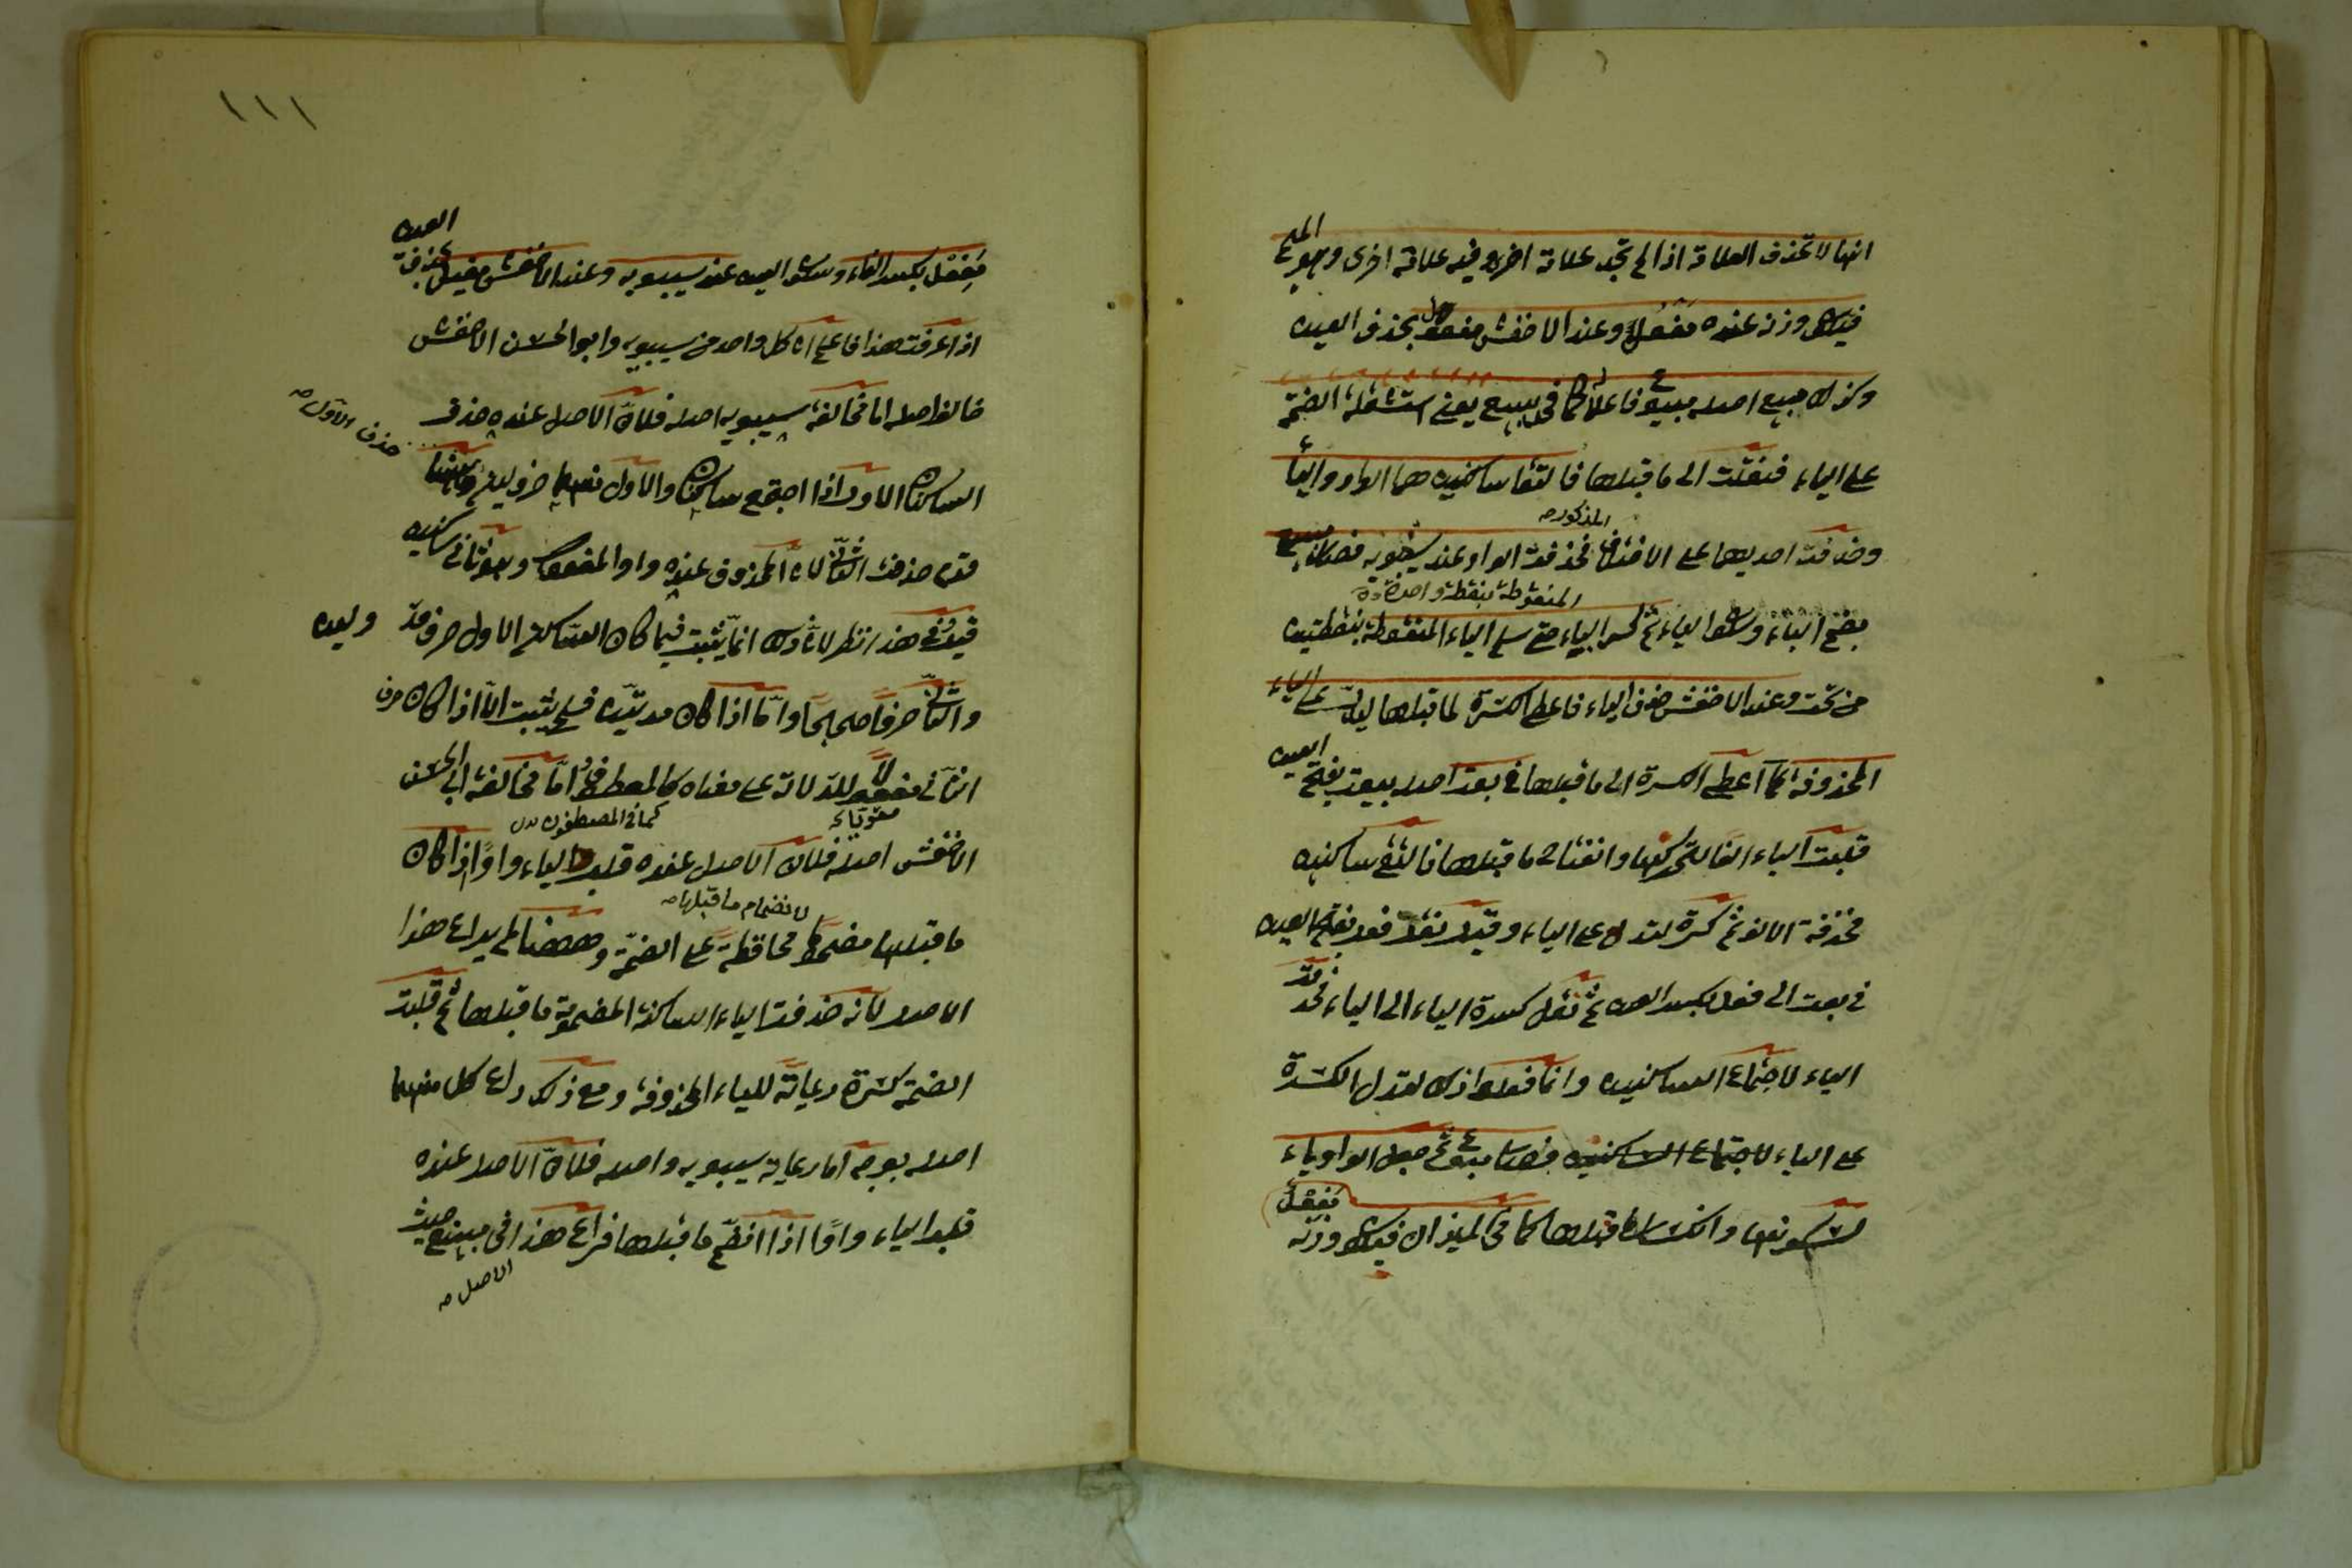 انها لا تحذف العلامة اذا لم تجد علامة اخرى وفيه علامة اخرى وهو الميم
فيكون وزنه عنده مفعل وعند الاخفش مفول بحذف العين
وكذلك مبيع اصله مبيوع فاعل كما في يبيع يعني استثقلت الضمة
على الياء فنقلت الى ما قبلها فالتقا ساكنين هما الواو والياء
وحذفت احديهما على الاختلاف المذكور فحذفت الواو عند سيبويه فصار مبيع
بضم الباء المنقوطة بنقطة واحدة وسكون الياء ثم كسر الباء حتى سلم الياء المنقوطة بنقطتين
من تحت وعند الاخفش حذف الياء فاعطى الكسرة لما قبلها ليدل على الياء
المحذوفة كما اعطى الكسرة الى ما قبلها في بعت اصله بيعت بفتح العين
قلبت الياء الفا لتحركها وانفتاح ما قبلها فالتقى ساكنين
فحذفت الالف ثم كسرة لتدل على الياء وقيل نقل فعل بفتح العين
في بعت الى فعل بكسر العين ثم نقل كسرة الياء الى الباء فحذفت
الياء لاجتماع الساكنين وانما فعلوا ذلك لتدل الكسرة
على الياء لاجتماع الساكنين فصار مبوع ثم جعل الواو ياء
لسكونها وانكسار ما قبلها كما في الميزان فيكون وزنه مفعل
١١١
مفعل بكسر الفاء وسكون العين عند سيبويه وعند الاخفش مفيل بحذف العين
اذا عرفت هذا فاعلم ان كل واحد من سيبويه وابو الحسن الاخفش
خالفا اصله اما مخالفة سيبويه اصله فلان الاصل عنده حذف
الساكن الاول اذا اجتمع ساكنان والاول منهما حرف لين وههنا
حذف الاول صح
قد حذف الثاني لان المحذوف عنده واو المفعول وهو ثاني ساكنين
قيل وفي هذا نظر لان ذلك انما يثبت فيما كان الساكن الاول حرف مد ولين
والثاني حرفا صحيحا واما اذا كان مدتين فلم يثبت الا اذا كان حرف
الثاني مفعولا للدلالة على معناه كالمصطفون اما مخالفة ابي الحسن
كما في المصطفون
الاخفش اصله فلان الاصل عنده قلب الياء واوا اذا كان
ما قبلها مضموما لانضمام ما قبلها صح محافظة على الضمة وههنا لم يراع هذا
الاصل لانه حذفت الياء الساكنة المضمومة ما قبلها ثم قلبت
الضمة كسرة رعاية للياء المحذوفة ومع ذلك راع كل منهما
اصله بوجه اما رعاية سيبويه واصله فلان الاصل عنده
قلب الياء واوا اذا انضم ما قبلها فراع هذا في مبيع حيث
الاصل صح